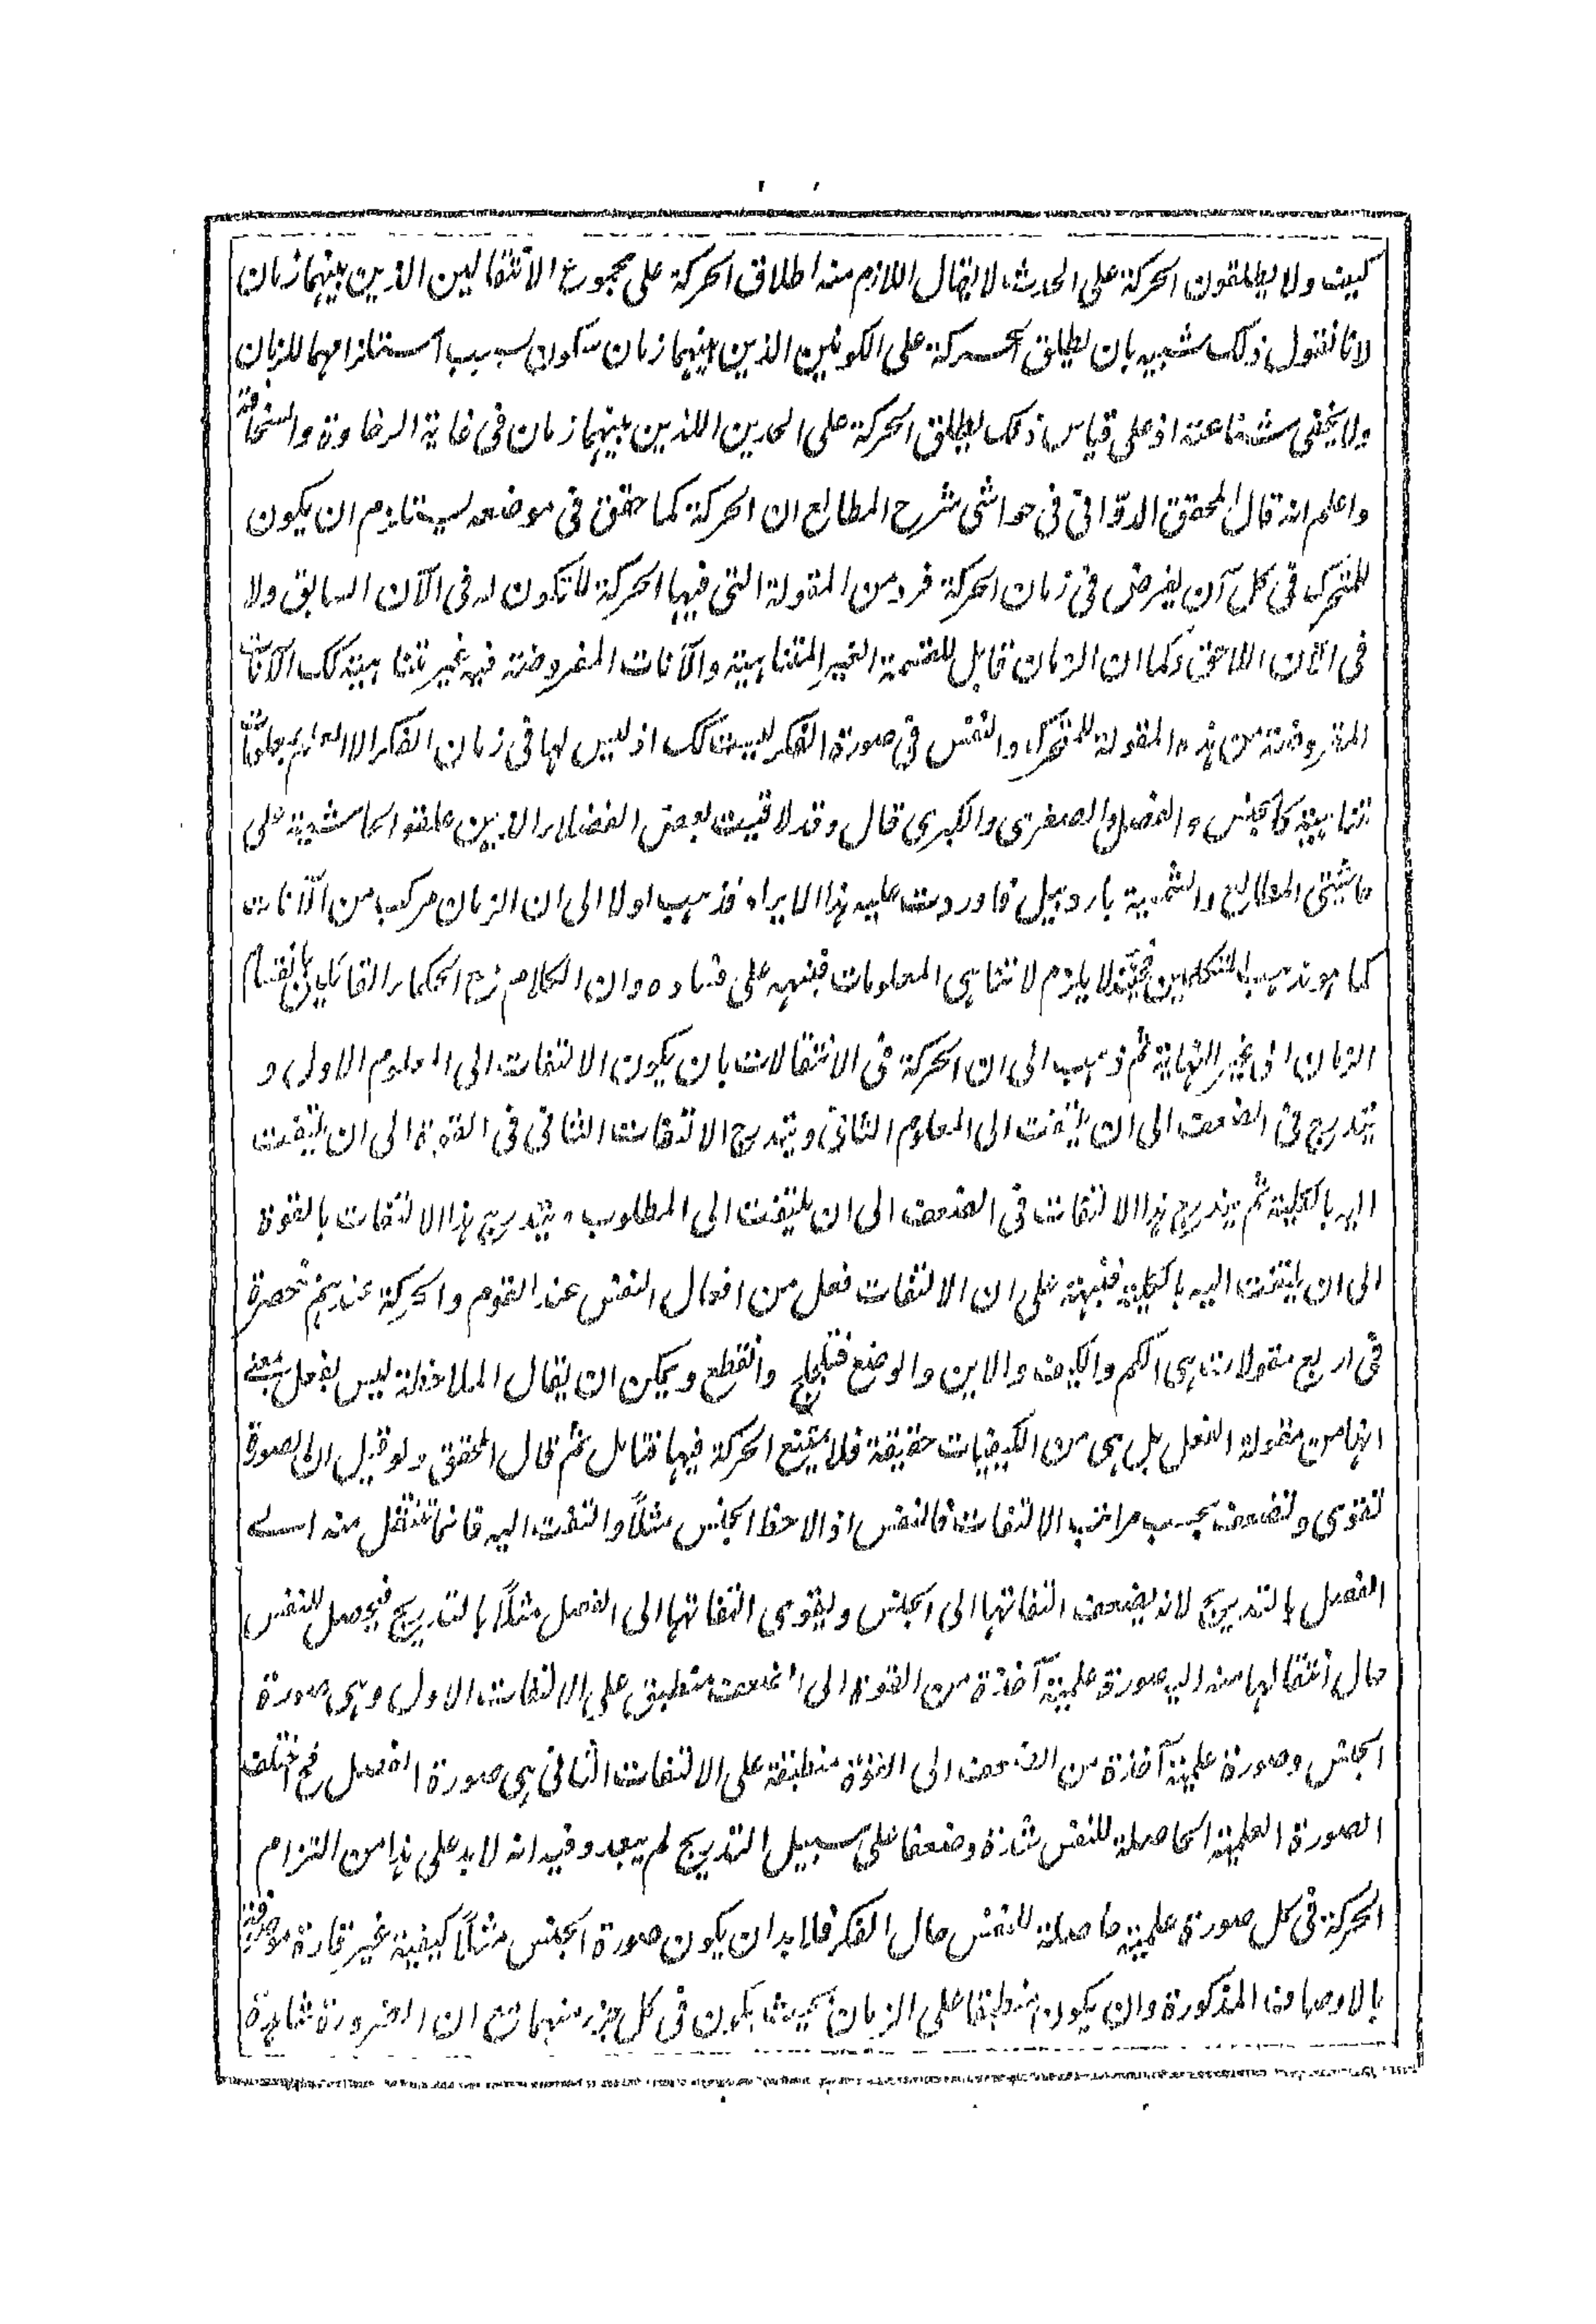 كيف ولا يطلقون الحركة على الحدث لا يقال اللازم منه اطلاق الحركة على مجموع الانتقالين الذين بينهما زمان
لانا نقول ذلك شبيه بان يطلق الحركة على الكونين الذين بينهما زمان سكون بسبب استلزامهما للزمان
ولا يخفى شناعته اذ على قياس ذلك يطلق الحركة على الحدين اللذين بينهما زمان فى غاية الرخاوة والسخافة
واعلم انه قال المحقق الدوّانى فى حواشى شرح المطالع ان الحركة كما حقق فى موضعه يستلزم ان يكون
للمتحرك فى كل آن يفرض فى زمان الحركة فرد من المقولة التى فيها الحركة لا تكون له فى الآن السابق ولا
فى الآن اللاحق وكما ان الزمان قابل للقسمة الغير المتناهية والآنات المفروضة فيه غير متناهية كك الآنات
المفروضة من هذه المقولة للمتحرك والنفس فى صورة الفكر ليست كك اذ ليس لها فى زمان الفكر الا العلم بمعلومات
متناهية كالجنس والفصل والصغرى والكبرى قال وقد لاقيت بعض الفضلاء الذين علقوا الحاشية على
حاشيتى المطالع والشمسية باردبيل فاوردت عليه هذا الايراد فذهب اولا الى ان الزمان مركب من الآنات
كما هو مذهب المتكلمين فحينئذ لا يلزم لا تناهى المعلومات فنبهته على فساده وان الكلام مع الحكماء القائلين بانقسام
الزمان الى غير النهاية ثم ذهب الى ان الحركة فى الانتقالات بان يكون الالتفات الى المعلوم الاول و
يتدرج فى الضعف الى ان يلتفت الى المعلوم الثانى ويتدرج الالتفات الثانى فى القوة الى ان يلتفت
اليه بالكلية ثم يتدرج هذا الالتفات فى الضعف الى ان يلتفت الى المطلوب ويتدرج هذا الالتفات بالقوة
الى ان يلتفت اليه بالكلية فنبهته على ان الالتفات فعل من افعال النفس عند القوم والحركة عندهم منحصرة
فى اربع مقولات هى الكم والكيف والاين والوضع وانقطع ويمكن ان يقال الملاحظة ليس بفعل بمعنى
انها من مقولة الفعل بل هى من الكيفيات حقيقة فلا يمتنع الحركة فيها فتامل ثم قال المحقق ولو قيل ان الصورة
تقوى وتضعف بحسب مراتب الالتفات فالنفس اذا لاحظ الجنس مثلاً والتفت اليه فانما تنتقل منه الى
الفصل بالتدريج لانه يضعف التفاتها الى الجنس ويقوى التفاتها الى الفصل مثلاً بالتدريج فيحصل للنفس
حال انتقالها منه اليه صورة علمية آخذة من القوة الى الضعف منطبق على الالتفات الاول وهى صورة
الجنس وصورة علمية آخذة من الضعف الى القوة منطبقة على الالتفات الثانى هى صورة الفصل فح اختلف
الصورة العلمية الحاصلة للنفس شدة وضعفا على سبيل التدريج لم يبعد وفيه انه لابد على هذا من التزام
الحركة فى كل صورة علمية حاصلة للنفس حال الفكر فلابد ان يكون صورة الجنس مثلاً كيفية غير قارة موصوفة
بالاوصاف المذكورة وان يكون منطبقا على الزمان بحيث يكون فى كل جزء منهما مع ان الضرورة شاهدة